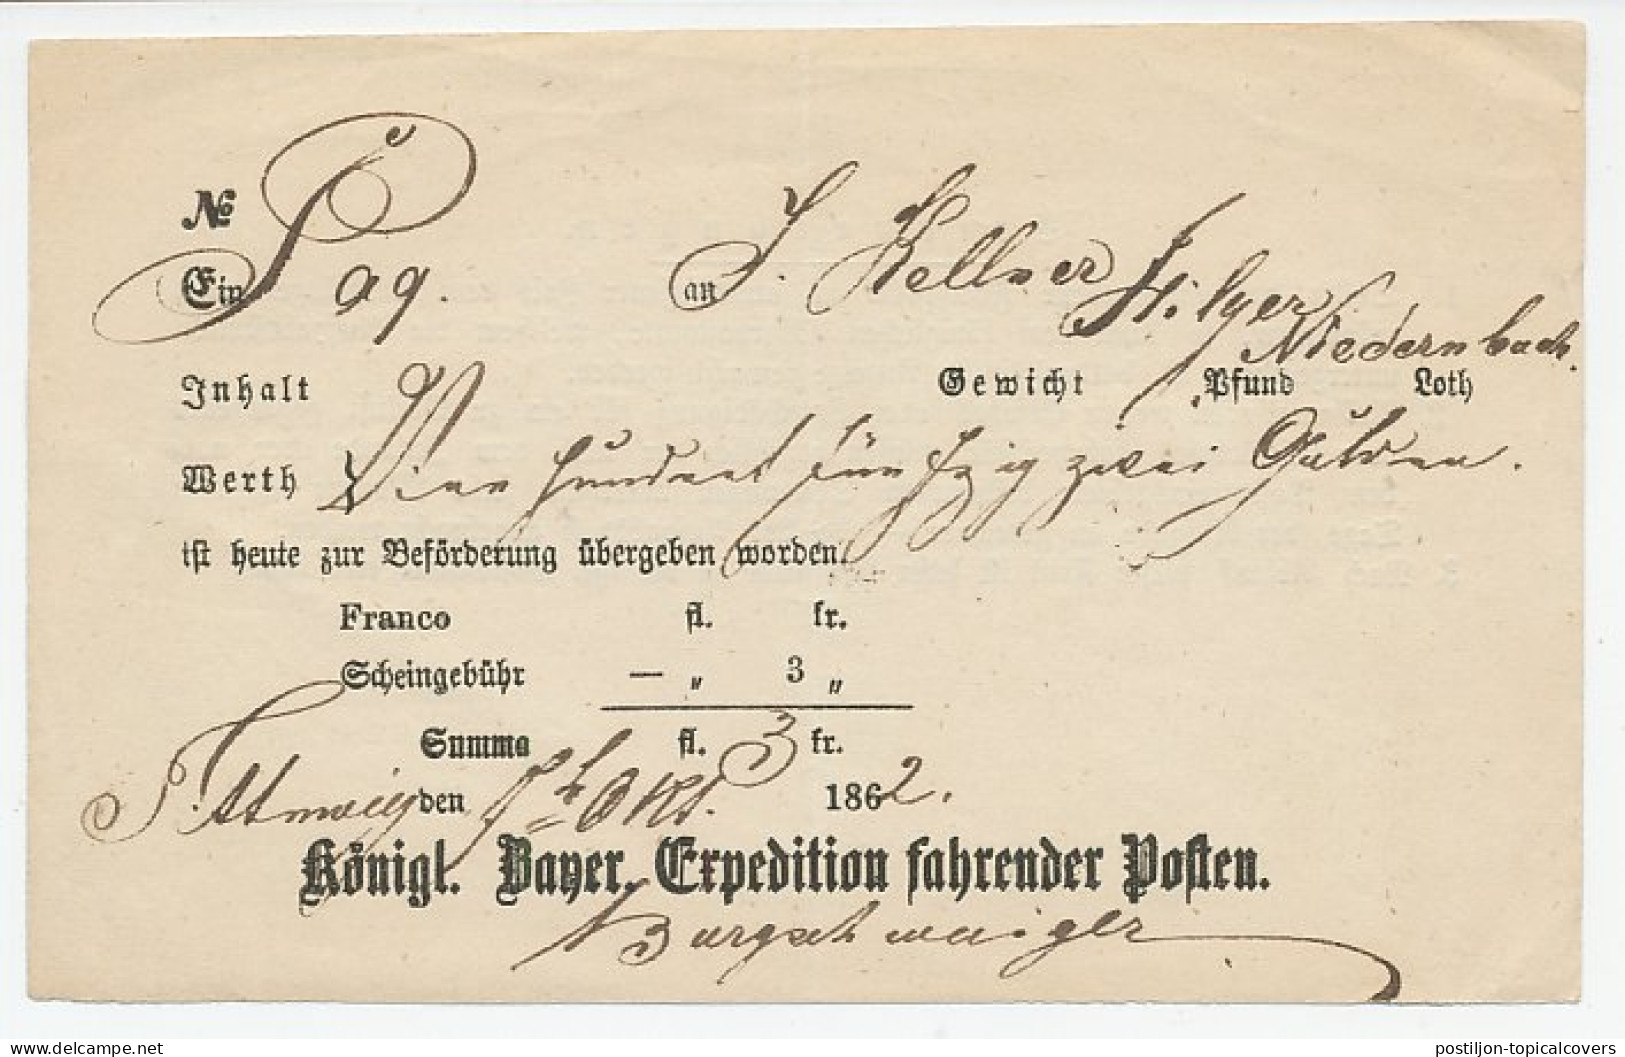 №
Ein Paq. an J. Kellner Hilger
Niedernbach.
Inhalt Gewicht Pfund Loth
Werth Vier hundert fünfzig zwei Gulden.
ist heute zur Beförderung übergeben worden.
Franco fl. kr.
Scheingebühr — „ 3 „
Summa fl. 3 kr.
den Okt. 1862.
Königl. Bayer. Expedition fahrender Posten.
Burgschwaiger
delcampe.net
postiljon-topicalcovers